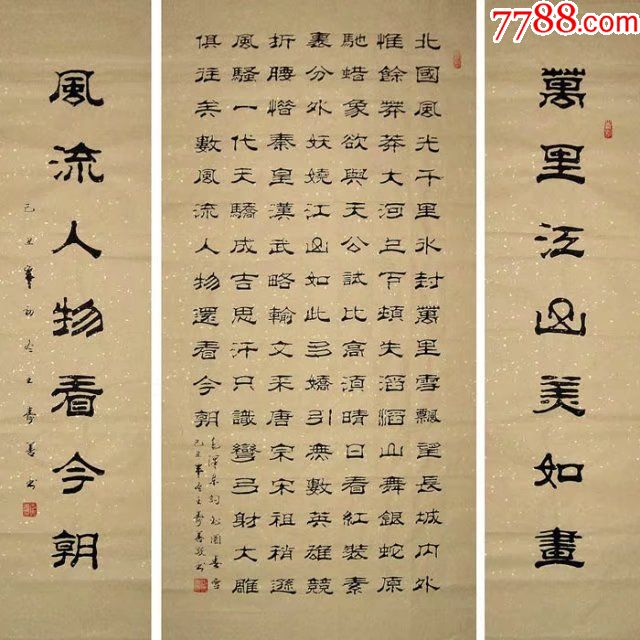 7788.com
萬里江山美如畫
北國風光千里冰封萬里雪飄望長城內外
惟餘莽莽大河上下頓失滔滔山舞銀蛇原
馳蠟象欲與天公試比高須晴日看紅裝素
裹分外妖嬈江山如此多嬌引無數英雄競
折腰惜秦皇漢武略輸文采唐宗宋祖稍遜
風騷一代天驕成吉思汗只識彎弓射大雕
俱往矣數風流人物還看今朝
毛澤東詞沁園春雪
風流人物看今朝